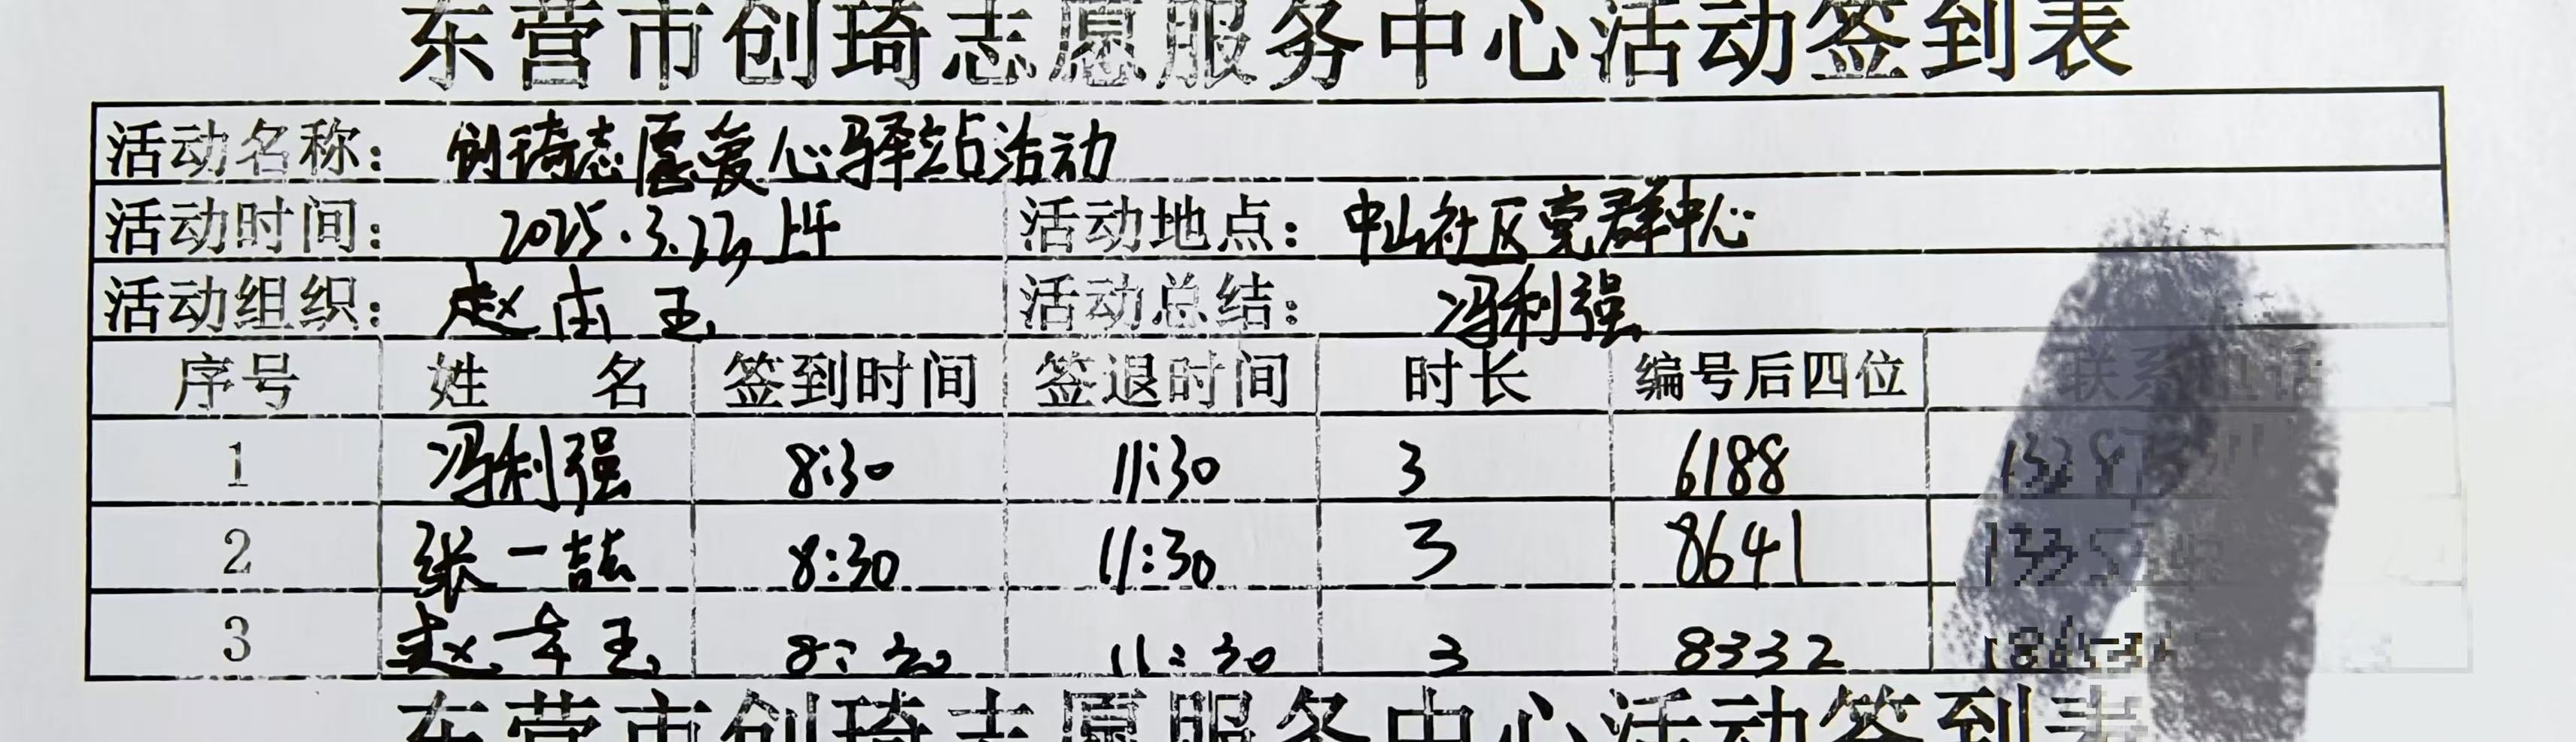 东营市创琦志愿服务中心活动签到表
活动名称： 创琦志愿爱心驿站活动
活动时间： 2025.3.22,上午 活动地点： 中山社区党群中心
活动组织： 赵 玉 活动总结： 冯利强
序号 姓 名 签到时间 签退时间 时长 编号后四位 联系电话
1 冯利强 8:30 11:30 3 6188
2 张一喆 8:30 11:30 3 8641
3 赵 玉 8:30 11:30 3 8332
东营市创琦志愿服务中心活动签到表